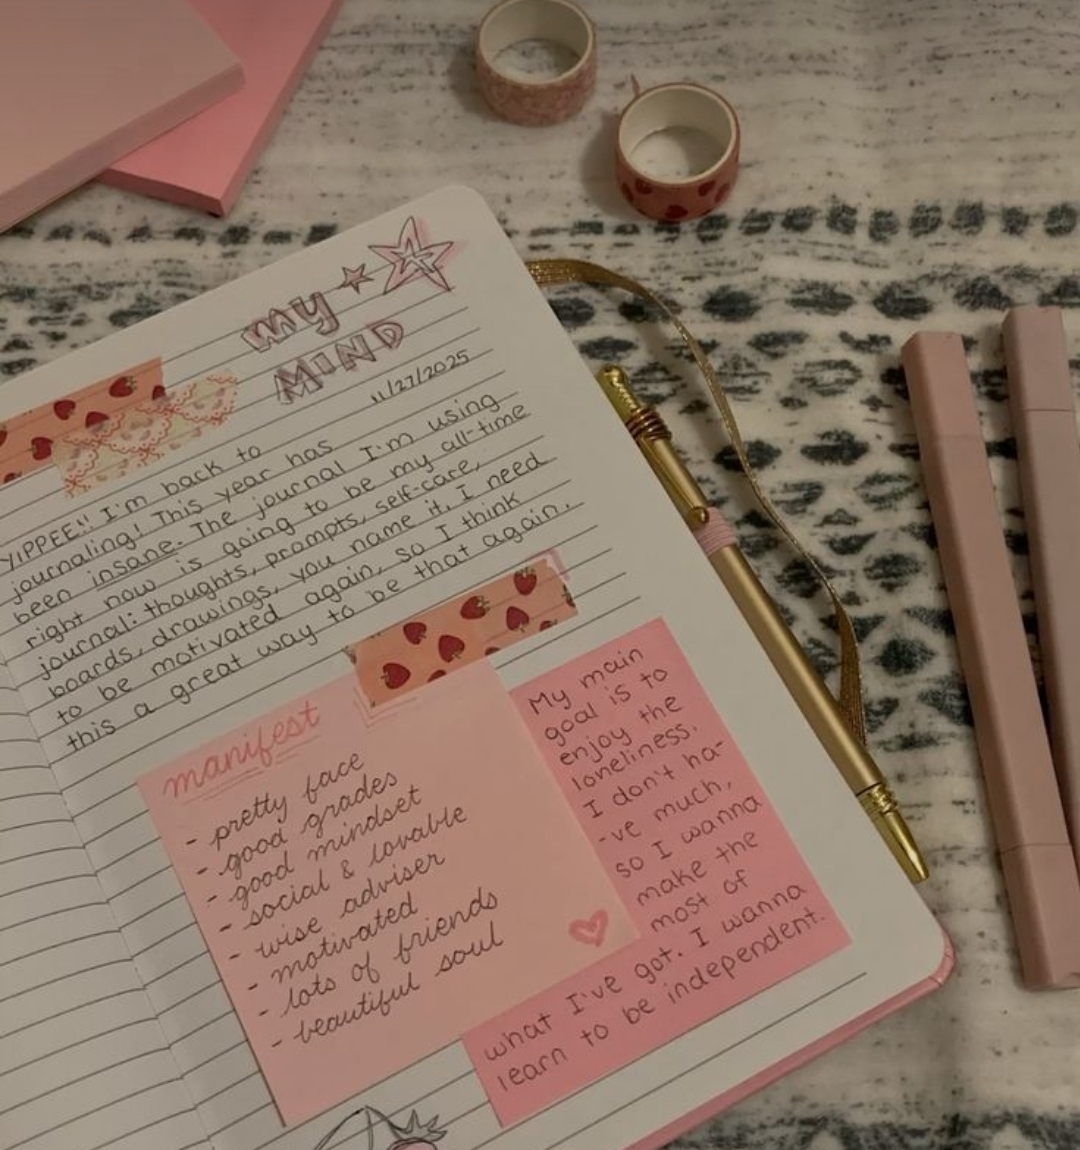 my
MIND
11/27/2025
YIPPEE!! I'm back to
journaling! This year has
been insane. The journal I'm using
right now is going to be my all-time
journal: thoughts, prompts, self-care,
boards, drawings, you name it. I need
to be motivated again, so I think
this a great way to be that again.
manifest
- pretty face
- good grades
- good mindset
- social & lovable
- wise adviser
- motivated
- lots of friends
- beautiful soul
My main
goal is to
enjoy the
loneliness.
I don't ha-
-ve much,
so I wanna
make the
most of
what I've got. I wanna
learn to be independent.